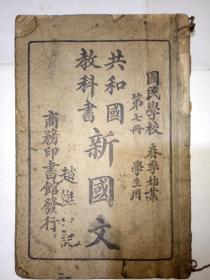 國民學校 春季始業
第七冊 學生用
共和國
教科書
新國文
商務印書館發行
趙
記